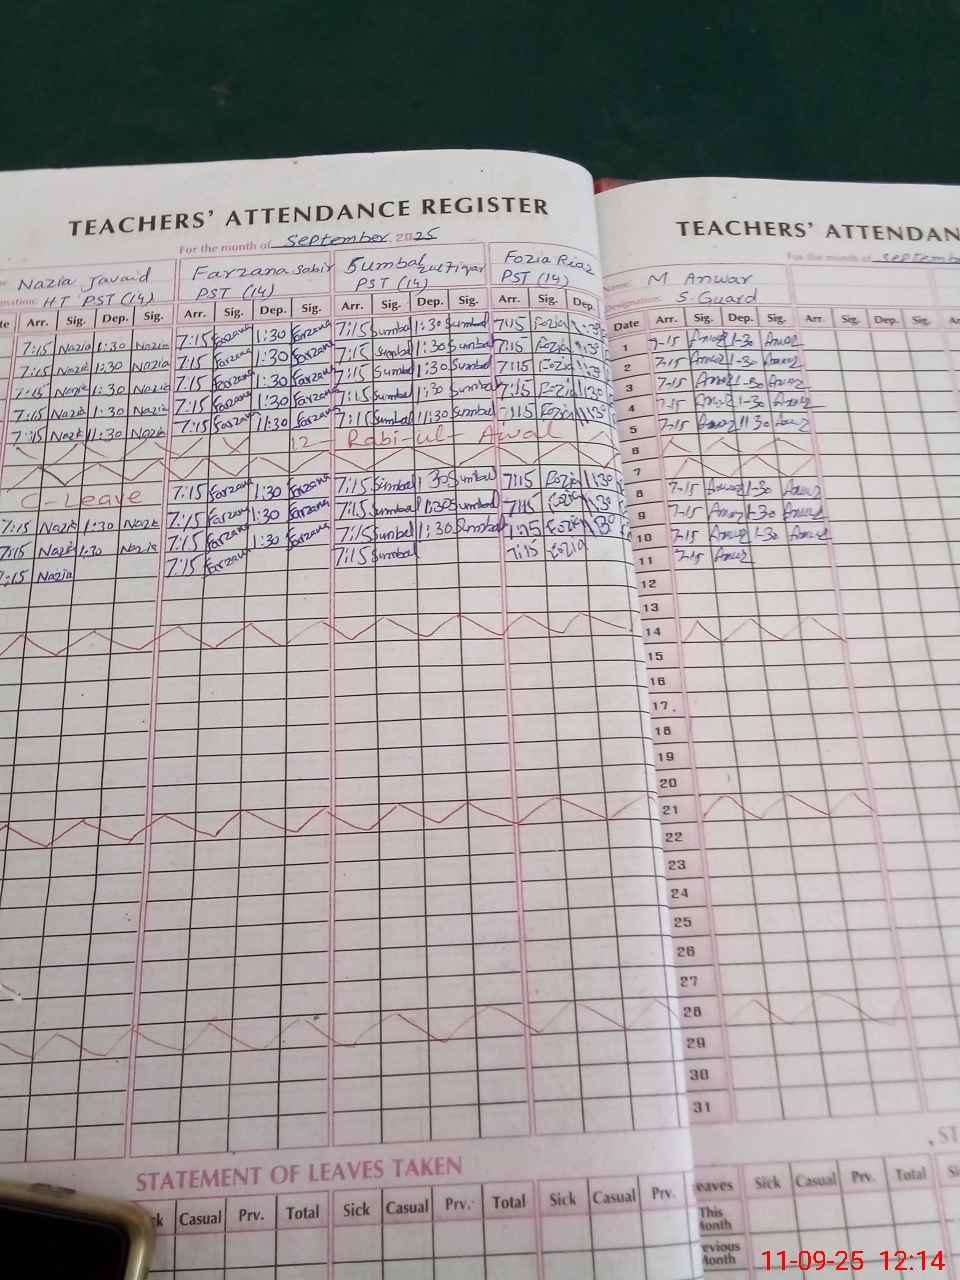 TEACHERS' ATTENDANCE REGISTER
For the month of September 2025
Nazia Javaid
HT PST (14)
Farzana Sabir
PST (14)
Sumbal
PST (14)
Fozia Riaz
PST (14)
Arr. Sig. Dep. Sig. Arr. Sig. Dep. Sig. Arr. Sig. Dep. Sig. Arr. Sig. Dep
7:15 Nazia 1:30 Nazia 7:15 Farzana 1:30 Farzana 7:15 Sumbal 1:30 Sumbal 7:15 Fozia 1:30
7:15 Nazia 1:30 Nazia 7:15 Farzana 1:30 Farzana 7:15 Sumbal 1:30 Sumbal 7:15 Fozia 1:30
7:15 Nazia 1:30 Nazia 7:15 Farzana 1:30 Farzana 7:15 Sumbal 1:30 Sumbal 7:15 Fozia 1:30
7:15 Nazia 1:30 Nazia 7:15 Farzana 1:30 Farzana 7:15 Sumbal 1:30 Sumbal 7:15 Fozia 1:30
7:15 Nazia 1:30 Nazia 7:15 Farzana 11:30 Farzana 7:15 Sumbal 11:30 Sumbal 7:15 Fozia 1:30
12 - Rabi-ul- Awal
C-Leave 7:15 Farzana 1:30 Farzana 7:15 Sumbal 1:30 Sumbal 7:15 Fozia 1:30
7:15 Nazia 1:30 Nazia 7:15 Farzana 1:30 Farzana 7:15 Sumbal 1:30 Sumbal 7:15 Fozia 1:30
7:15 Nazia 1:30 Nazia 7:15 Farzana 1:30 Farzana 7:15 Sumbal 1:30 Sumbal 7:15 Fozia 1:30
7:15 Nazia 7:15 Farzana 7:15 Sumbal 7:15 Fozia
STATEMENT OF LEAVES TAKEN
Casual Prv. Total Sick Casual Prv. Total Sick Casual Prv.
TEACHERS' ATTENDAN
For the month of
M Anwar
S. Guard
Date Arr. Sig. Dep. Sig. Arr. Sig. Dep. Sig.
1 7-15 Anwar 1-30 Anwar
2 7-15 Anwar 1-30 Anwar
3 7-15 Anwar 1-30 Anwar
4 7-15 Anwar 1-30 Anwar
5 7-15 Anwar 11 30 Anwar
6
7
8 7-15 Anwar 1-30 Anwar
9 7-15 Anwar 1-30 Anwar
10 7-15 Anwar 1-30 Anwar
11 7-15 Anwar
12
13
14
15
16
17
18
19
20
21
22
23
24
25
26
27
28
29
30
31
eaves Sick Casual Prv. Total
This
Month
Month
11-09-25 12:14